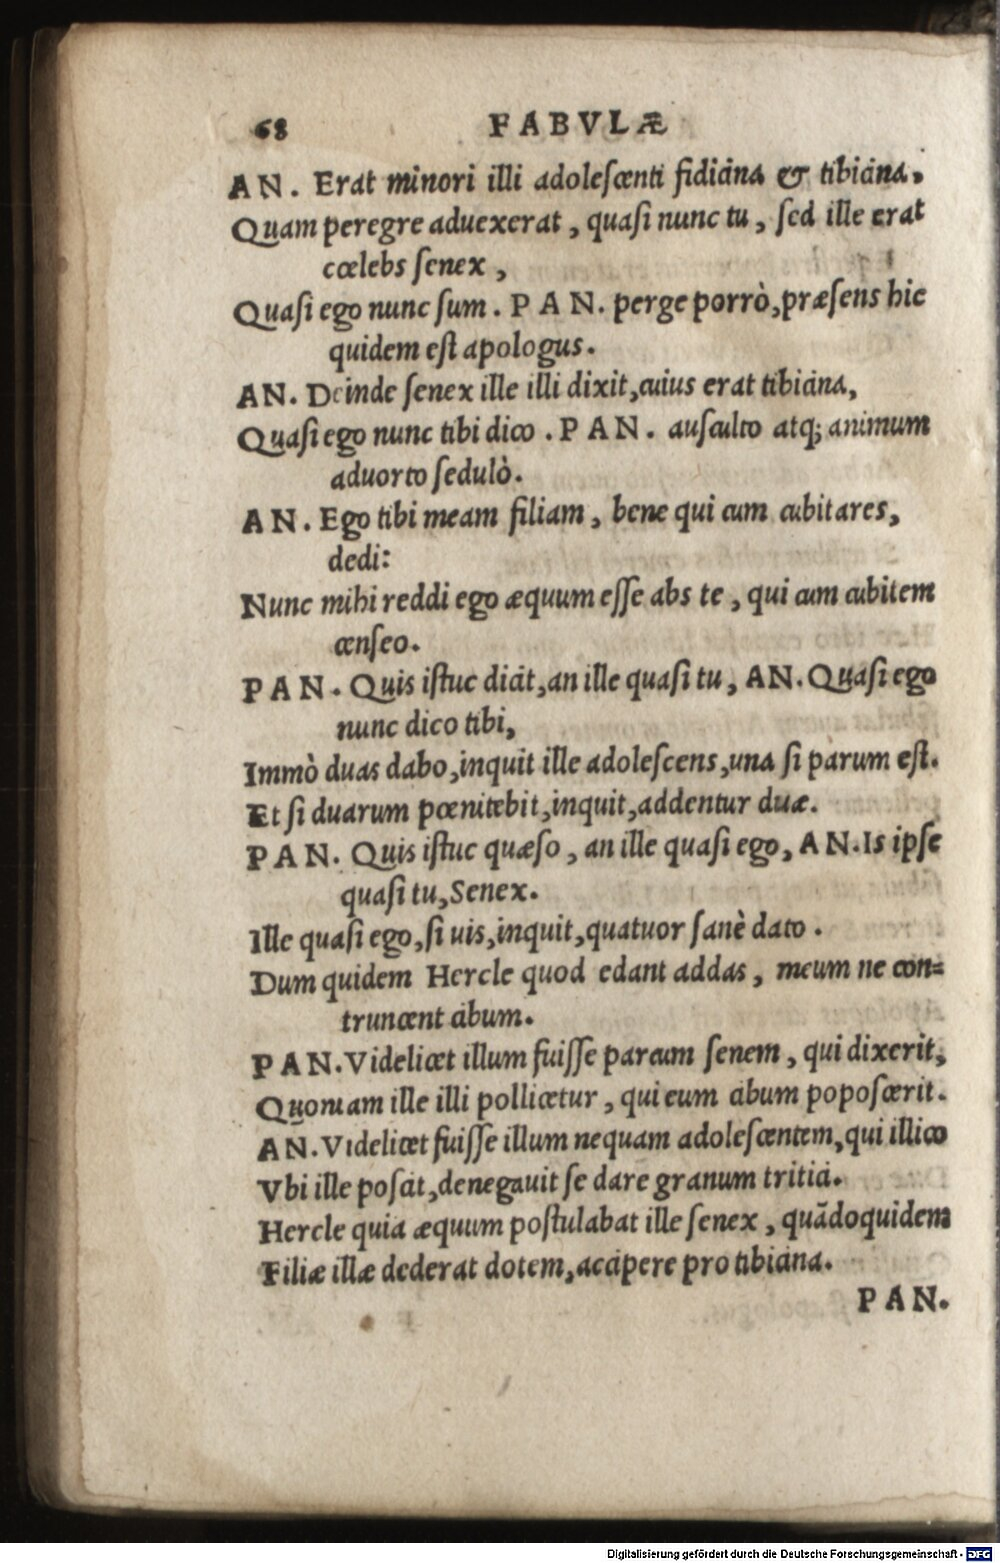 68 FABVLÆ
AN. Erat minori illi adolescenti fidicina & tibicina.
Quam peregre aduexerat, quasi nunc tu, sed ille erat
cœlebs senex,
Quasi ego nunc sum. PAN. perge porrò, præsens hic
quidem est apologus.
AN. Deinde senex ille illi dixit, cuius erat tibicina,
Quasi ego nunc tibi dico. PAN. ausculto atq; animum
aduorto sedulò.
AN. Ego tibi meam filiam, bene qui cum cubitares,
dedi:
Nunc mihi reddi ego æquum esse abs te, qui cum cubitem
censeo.
PAN. Quis istuc dicit, an ille quasi tu, AN. Quasi ego
nunc dico tibi,
Immò duas dabo, inquit ille adolescens, una si parum est.
Et si duarum pœnitebit, inquit, addentur duæ.
PAN. Quis istuc quæso, an ille quasi ego, AN. Is ipse
quasi tu, Senex.
Ille quasi ego, si uis, inquit, quatuor sanè dato.
Dum quidem Hercle quod edant addas, meum ne con=
truncent cibum.
PAN. Videlicet illum fuisse parcum senem, qui dixerit,
Quoniam ille illi pollicetur, qui eum cibum poposcerit.
AN. Videlicet fuisse illum nequam adolescentem, qui illico
Vbi ille poscit, denegauit se dare granum tritici.
Hercle quia æquum postulabat ille senex, quãdoquidem
Filiæ illæ dederat dotem, accipere pro tibicina.
PAN.
Digitalisierung gefördert durch die Deutsche Forschungsgemeinschaft - DFG